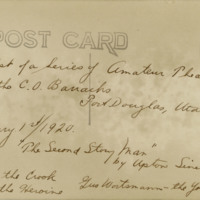 POST CARD
st of a series of Amateur
the C.O. Barracks
Fort Douglas, Utah
ry 1st/1920.
"The Second Story Man"
by Upton Sinc
the Crook
the Heroine